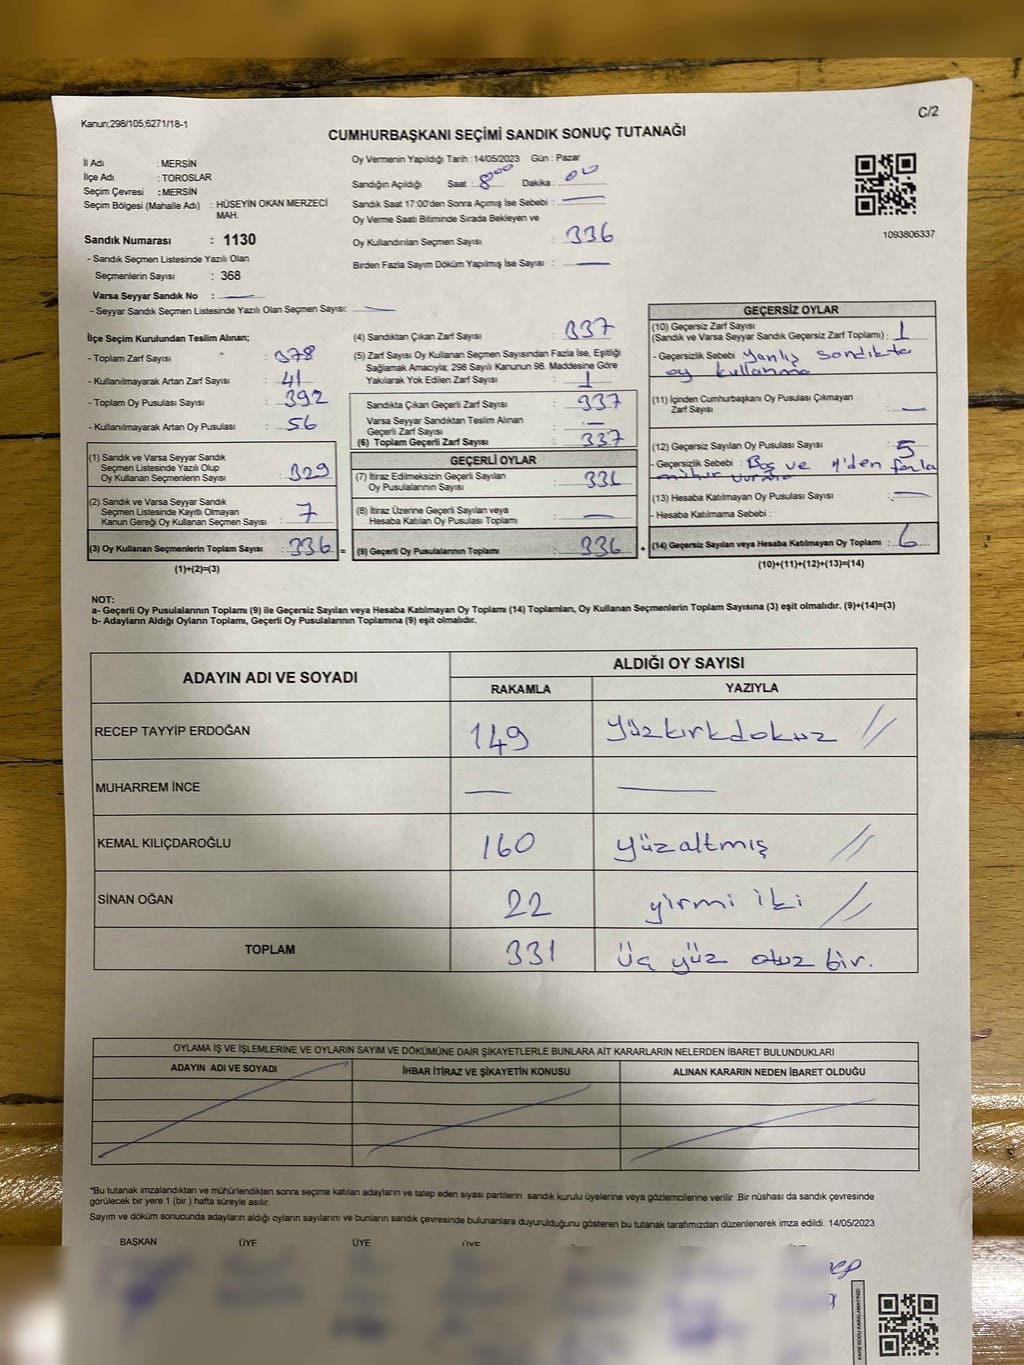 C/2
Kanun;298/105;6271/18-1
CUMHURBAŞKANI SEÇİMİ SANDIK SONUÇ TUTANAĞI
İl Adı : MERSİN
İlçe Adı : TOROSLAR
Seçim Çevresi : MERSİN
Seçim Bölgesi (Mahalle Adı) : HÜSEYİN OKAN MERZECİ
MAH.
Sandık Numarası : 1130
- Sandık Seçmen Listesinde Yazılı Olan
Seçmenlerin Sayısı : 368
Varsa Seyyar Sandık No : —
- Seyyar Sandık Seçmen Listesinde Yazılı Olan Seçmen Sayısı: —
Oy Vermenin Yapıldığı Tarih : 14/05/2023 Gün : Pazar
Sandığın Açıldığı Saat : 8⁰⁰ Dakika : 00
Sandık Saat 17:00'den Sonra Açımış İse Sebebi : —
Oy Verme Saati Bitiminde Sırada Bekleyen ve
Oy Kullandırılan Seçmen Sayısı : 336
Birden Fazla Sayım Döküm Yapılmış İse Sayısı : —
1093806337
İlçe Seçim Kurulundan Teslim Alınan;
- Toplam Zarf Sayısı : 378
- Kullanılmayarak Artan Zarf Sayısı : 41
- Toplam Oy Pusulası Sayısı : 392
- Kullanılmayarak Artan Oy Pusulası : 56
(1) Sandık ve Varsa Seyyar Sandık
Seçmen Listesinde Yazılı Olup
Oy Kullanan Seçmenlerin Sayısı : 329
(2) Sandık ve Varsa Seyyar Sandık
Seçmen Listesinde Kayıtlı Olmayan
Kanun Gereği Oy Kullanan Seçmen Sayısı : 7
(3) Oy Kullanan Seçmenlerin Toplam Sayısı : 336 =
(1)+(2)=(3)
(4) Sandıktan Çıkan Zarf Sayısı : 337
(5) Zarf Sayısı Oy Kullanan Seçmen Sayısından Fazla İse, Eşitliği
Sağlamak Amacıyla; 298 Sayılı Kanunun 98. Maddesine Göre
Yakılarak Yok Edilen Zarf Sayısı : 1
Sandıkta Çıkan Geçerli Zarf Sayısı : 337
Varsa Seyyar Sandıktan Teslim Alınan
Geçerli Zarf Sayısı : —
(6) Toplam Geçerli Zarf Sayısı : 337
GEÇERLİ OYLAR
(7) İtiraz Edilmeksizin Geçerli Sayılan
Oy Pusulalarının Sayısı :
(8) İtiraz Üzerine Geçerli Sayılan veya
Hesaba Katılan Oy Pusulası Toplamı : —
(9) Geçerli Oy Pusulalarının Toplamı : 336 +
GEÇERSİZ OYLAR
(10) Geçersiz Zarf Sayısı
(Sandık ve Varsa Seyyar Sandık Geçersiz Zarf Toplamı) : 1
- Geçersizlik Sebebi : Yanlış sandıkta
oy kullanma
(11) İçinden Cumhurbaşkanı Oy Pusulası Çıkmayan
Zarf Sayısı : —
(12) Geçersiz Sayılan Oy Pusulası Sayısı : 5
- Geçersizlik Sebebi : Boş ve 1'den fazla
mühür vurma
(13) Hesaba Katılmayan Oy Pusulası Sayısı : —
- Hesaba Katılmama Sebebi :
(14) Geçersiz Sayılan veya Hesaba Katılmayan Oy Toplamı : 6
(10)+(11)+(12)+(13)=(14)
NOT:
a- Geçerli Oy Pusulalarının Toplamı (9) ile Geçersiz Sayılan veya Hesaba Katılmayan Oy Toplamı (14) Toplamları, Oy Kullanan Seçmenlerin Toplam Sayısına (3) eşit olmalıdır. (9)+(14)=(3)
b- Adayların Aldığı Oyların Toplamı, Geçerli Oy Pusulalarının Toplamına (9) eşit olmalıdır.
ADAYIN ADI VE SOYADI
ALDIĞI OY SAYISI
RAKAMLA YAZIYLA
RECEP TAYYİP ERDOĞAN 149 Yüzkırkdokuz //
MUHARREM İNCE — —
KEMAL KILIÇDAROĞLU 160 yüzaltmış //
SİNAN OĞAN 22 yirmi iki //
TOPLAM 331 Üç yüz otuz bir.
OYLAMA İŞ VE İŞLEMLERİNE VE OYLARIN SAYIM VE DÖKÜMÜNE DAİR ŞİKAYETLERLE BUNLARA AİT KARARLARIN NELERDEN İBARET BULUNDUKLARI
ADAYIN ADI VE SOYADI İHBAR İTİRAZ VE ŞİKAYETİN KONUSU ALINAN KARARIN NEDEN İBARET OLDUĞU
*Bu tutanak imzalandıktan ve mühürlendikten sonra seçime katılan adayların ve talep eden siyasi partilerin sandık kurulu üyelerine veya gözlemcilerine verilir .Bir nüshası da sandık çevresinde
görülecek bir yere 1 (bir ) hafta süreyle asılır.
Sayım ve döküm sonucunda adayların aldığı oyların sayılarını ve bunların sandık çevresinde bulunanlara duyurulduğunu gösteren bu tutanak tarafımızdan düzenlenerek imza edildi. 14/05/2023
BAŞKAN ÜYE ÜYE ÜYE